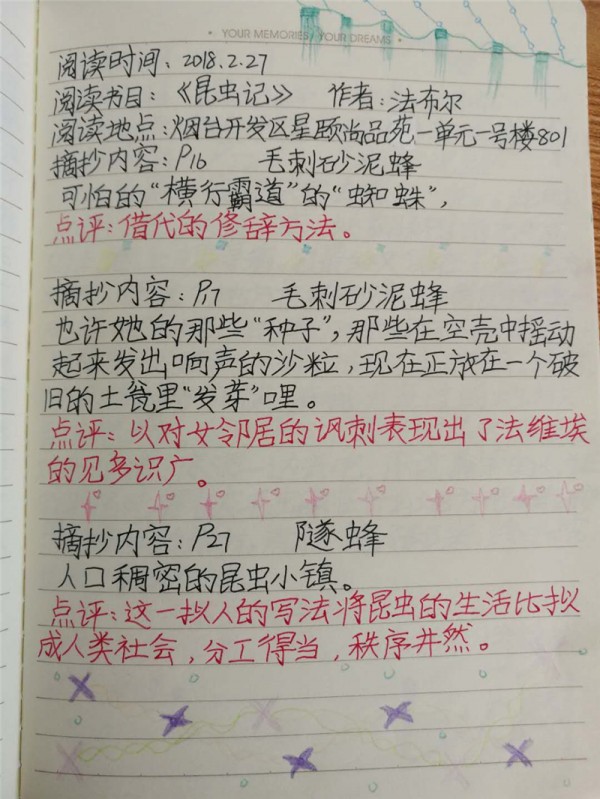 · YOUR MEMORIES, YOUR DREAMS ·
阅读时间：2018.2.27
阅读书目：《昆虫记》 作者：法布尔
阅读地点：烟台开发区星颐尚品苑一单元一号楼801
摘抄内容：P16 毛刺砂泥蜂
可怕的“横行霸道”的“蜘蛛”，
点评：借代的修辞方法。
摘抄内容：P17 毛刺砂泥蜂
也许她的那些“种子”，那些在空壳中摇动
起来发出响声的沙粒，现在正放在一个破
旧的土瓮里“发芽”哩。
点评：以对女邻居的讽刺表现出了法维埃
的见多识广。
摘抄内容：P27 隧蜂
人口稠密的昆虫小镇。
点评：这一拟人的写法将昆虫的生活比拟
成人类社会，分工得当，秩序井然。